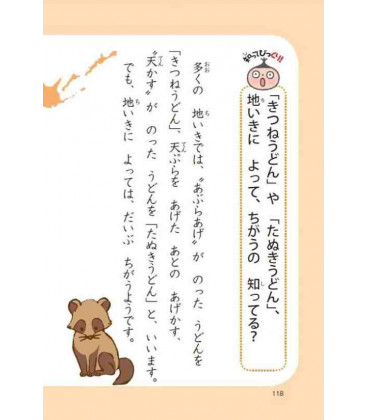 知ってびっくり!!
「きつねうどん」や「たぬきうどん」、
地いきに よって、ちがうの 知ってる？
多くの 地いきでは、“あぶらあげ”が のった うどんを
「きつねうどん」、天ぷらを あげた あとの あげかす、
“天かす”が のった うどんを「たぬきうどん」と、いいます。
でも、地いきに よっては、だいぶ ちがうようです。
118